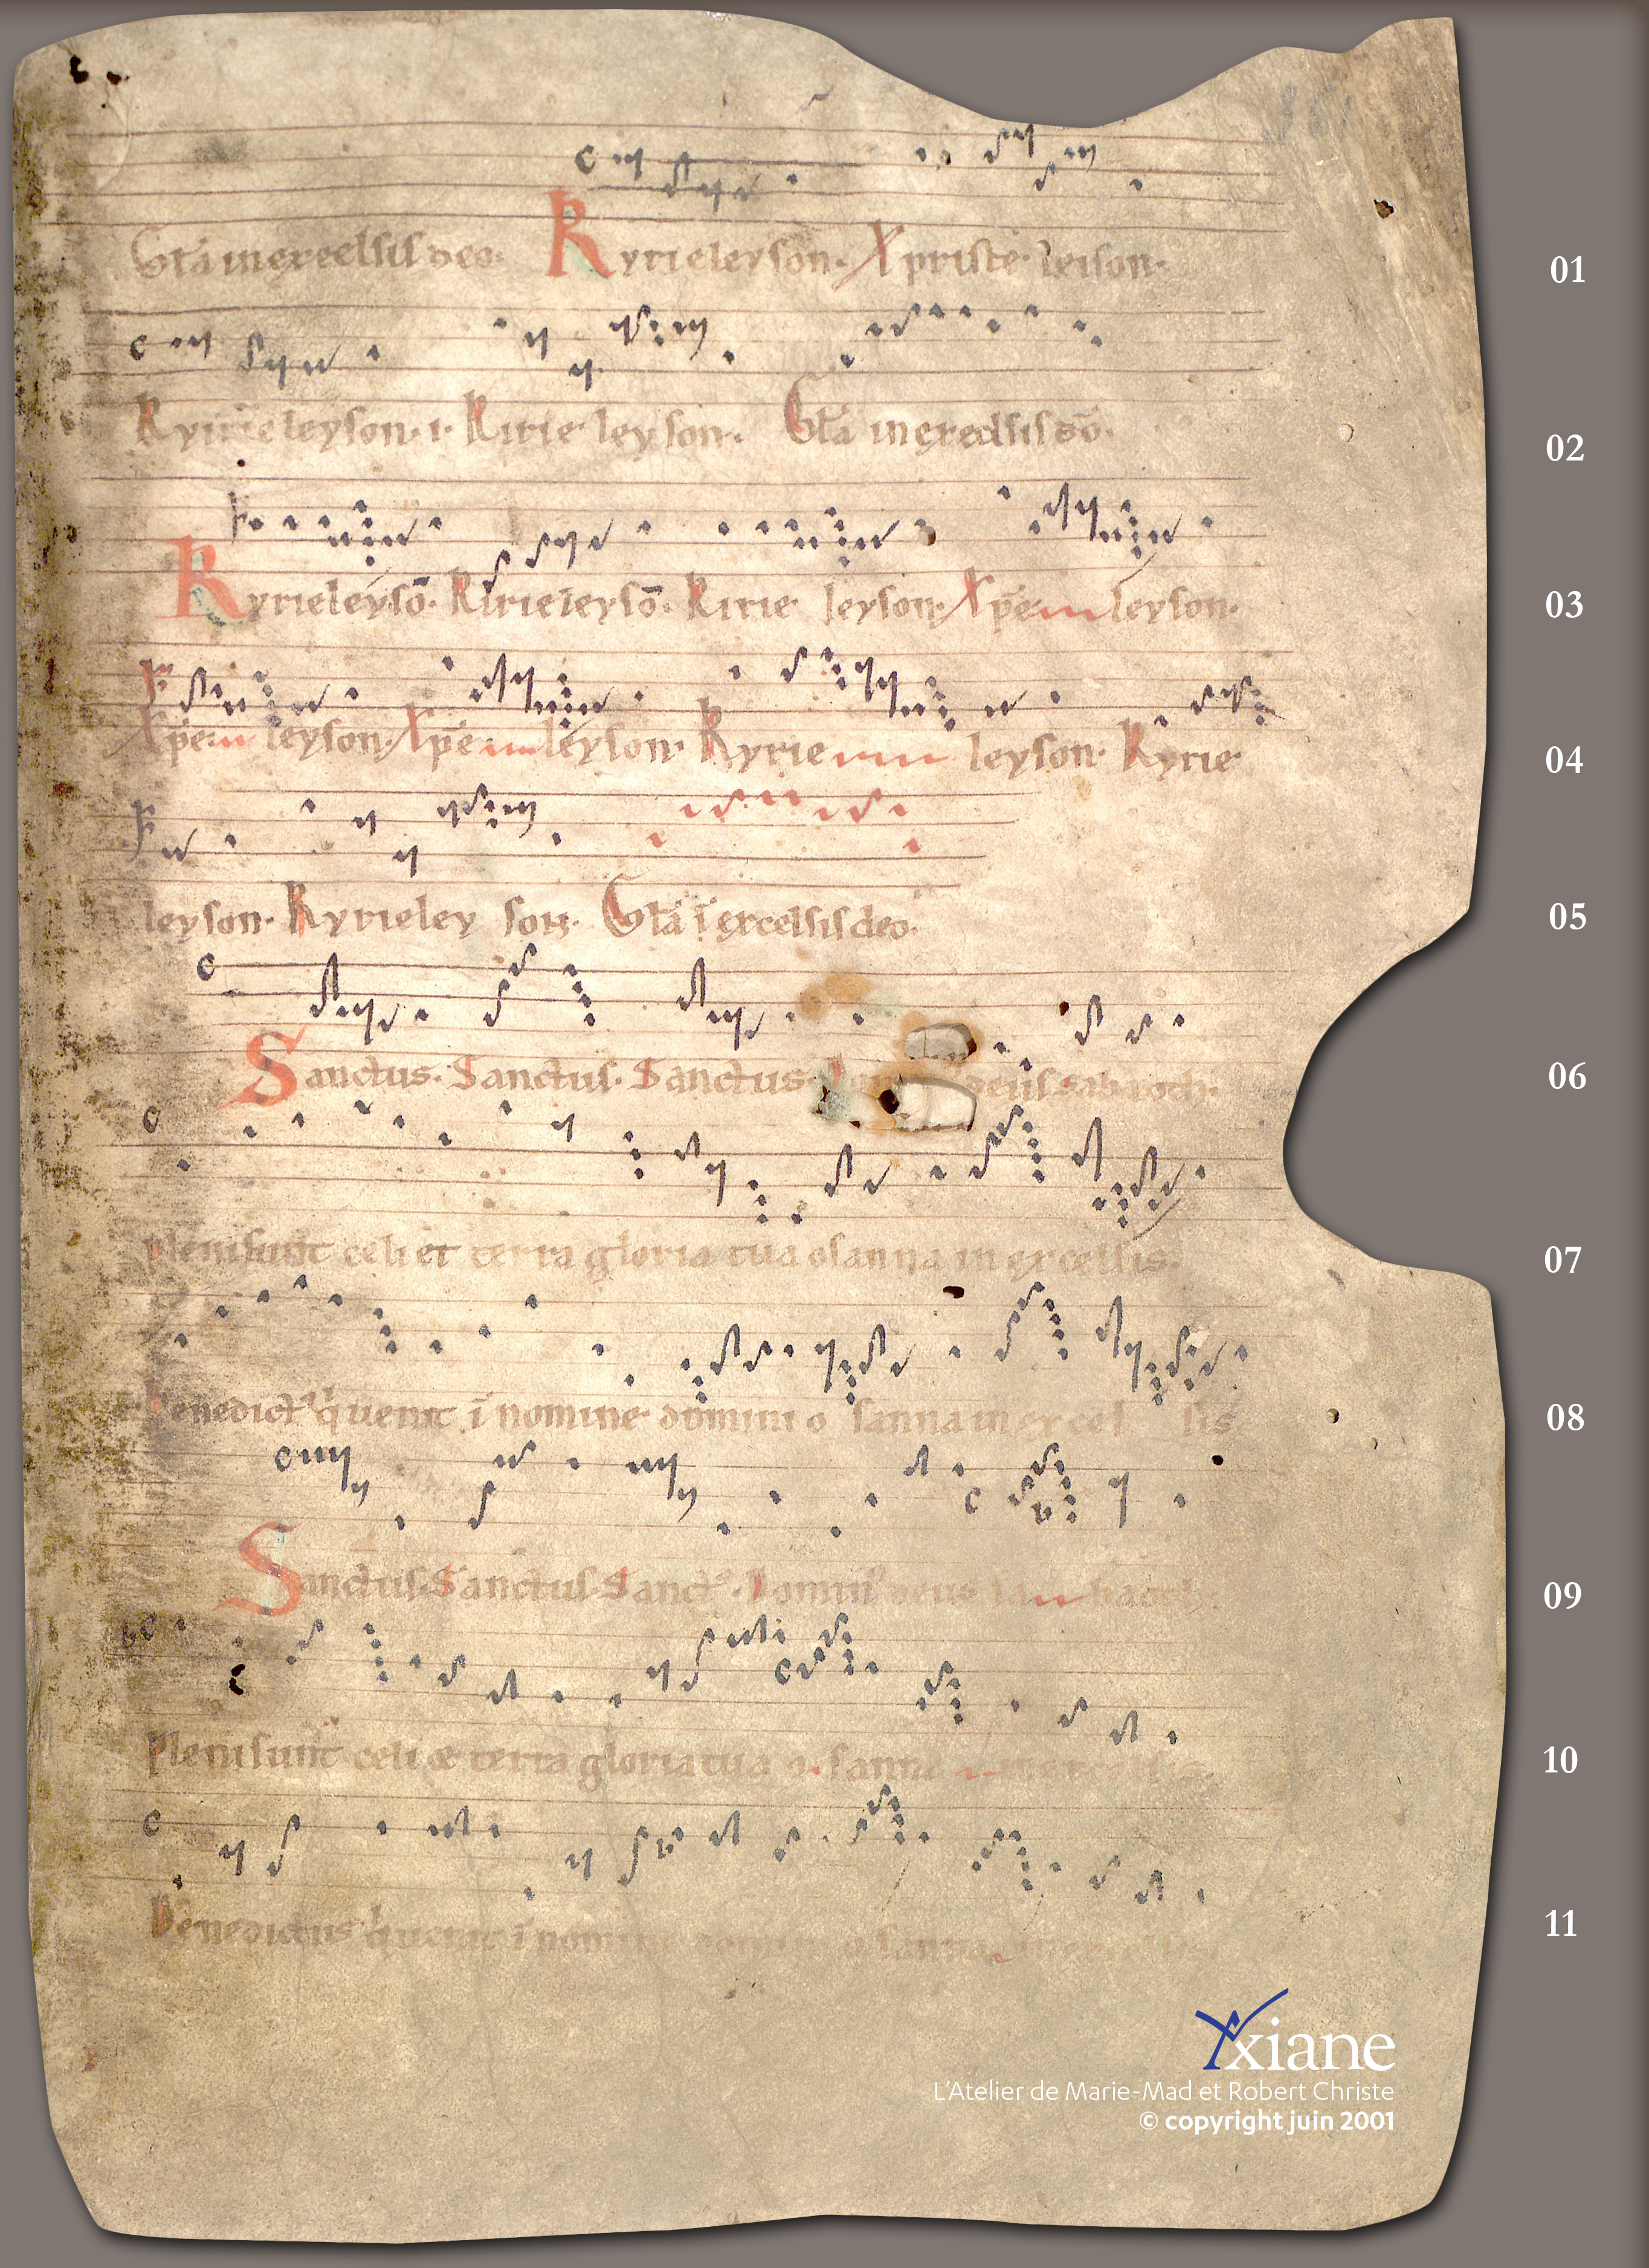 Gl̄a in excelsis deo. Kyrieleyson. Xpriste leison. 01
Kyrieleyson. i. Kirie leyson. Gl̄a in excelsis dō. 02
Kyrieleysō. Kirieleysō. Kirie leyson. Xp̄e leyson. 03
Xp̄e leyson. Xp̄e leyson. Kyrie leyson. Kyrie 04
leyson. Kyrieley son. Gl̄a ī excelsis deo. 05
Sanctus. Sanctus. Sanctus. deus sabaoth. 06
Pleni sunt celi et terra gloria tua osanna in excelsis. 07
Benedict9 q̇ uenit ī nomine domini o sanna in excel sis 08
Sanctus. Sanctus. Sanct9. Domin9 deus sa baoth. 09
Pleni sunt celi & terra gloria tua o sanna in excelsis. 10
Benedictus q̇ uenit ī sanna 11
Xxiane
L'Atelier de Marie-Mad et Robert Christe
© copyright juin 2001